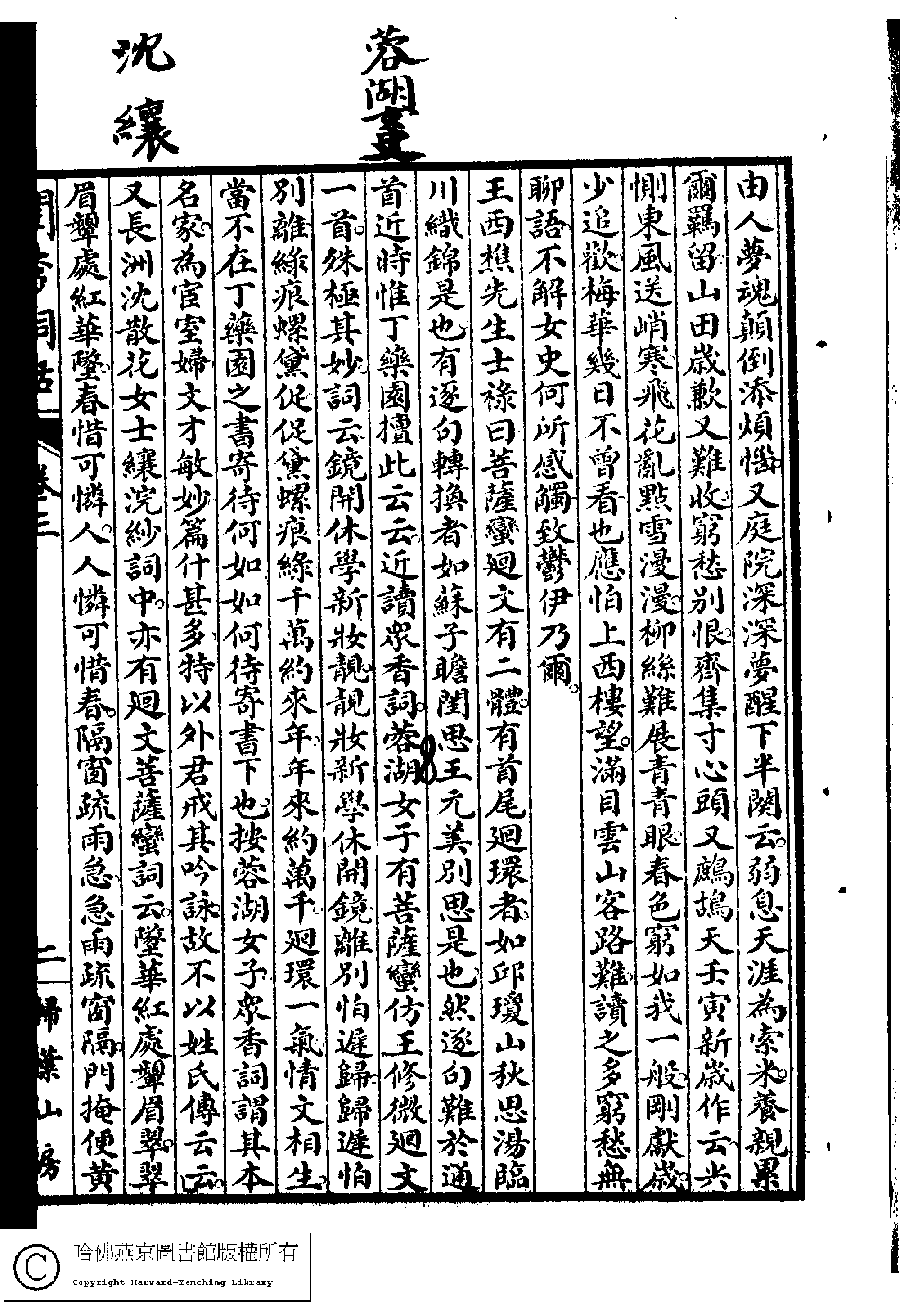 蓉湖
沈纕
由人夢魂顛倒添煩惱又庭院深深夢醒下半闋云弱息天涯為索米養親累
爾羈留山田歲歉又難收窮愁別恨齊集寸心頭又鷓鴣天壬寅新歲作云尖
惻東風送峭寒飛花亂點雪漫漫柳絲難展青青眼春色窮如我一般剛獻歲
少追歡梅華幾日不曾看也應怕上西樓望滿目雲山客路難讀之多窮愁無
聊語不解女史何所感觸致鬱伊乃爾
王西樵先生士祿曰菩薩蠻迴文有二體有首尾迴環者如邱瓊山秋思湯臨
川織錦是也有逐句轉換者如蘇子瞻閨思王元美別思是也然逐句難於通
首近時惟丁藥園擅此云云近讀眾香詞蓉湖女子有菩薩蠻仿王修微迴文
一首殊極其妙詞云鏡開休學新妝靚靚妝新學休開鏡離別怕遲歸歸遲怕
別離綠痕螺黛促促黛螺痕綠千萬約來年年來約萬千迴環一氣情文相生
當不在丁藥園之書寄待何如如何待寄書下也按蓉湖女子眾香詞謂其本
名家為宦室婦文才敏妙篇什甚多特以外君戒其吟詠故不以姓氏傳云云
又長洲沈散花女士纕浣紗詞中亦有迴文菩薩蠻詞云墮華紅處顰眉翠翠
眉顰處紅華墮春惜可憐人人憐可惜春隔窗疏雨急急雨疏窗隔門掩便黃
閨秀詞話 卷三 二 掃葉山房
哈佛燕京圖書館版權所有
Copyright Harvard-Yenching Library